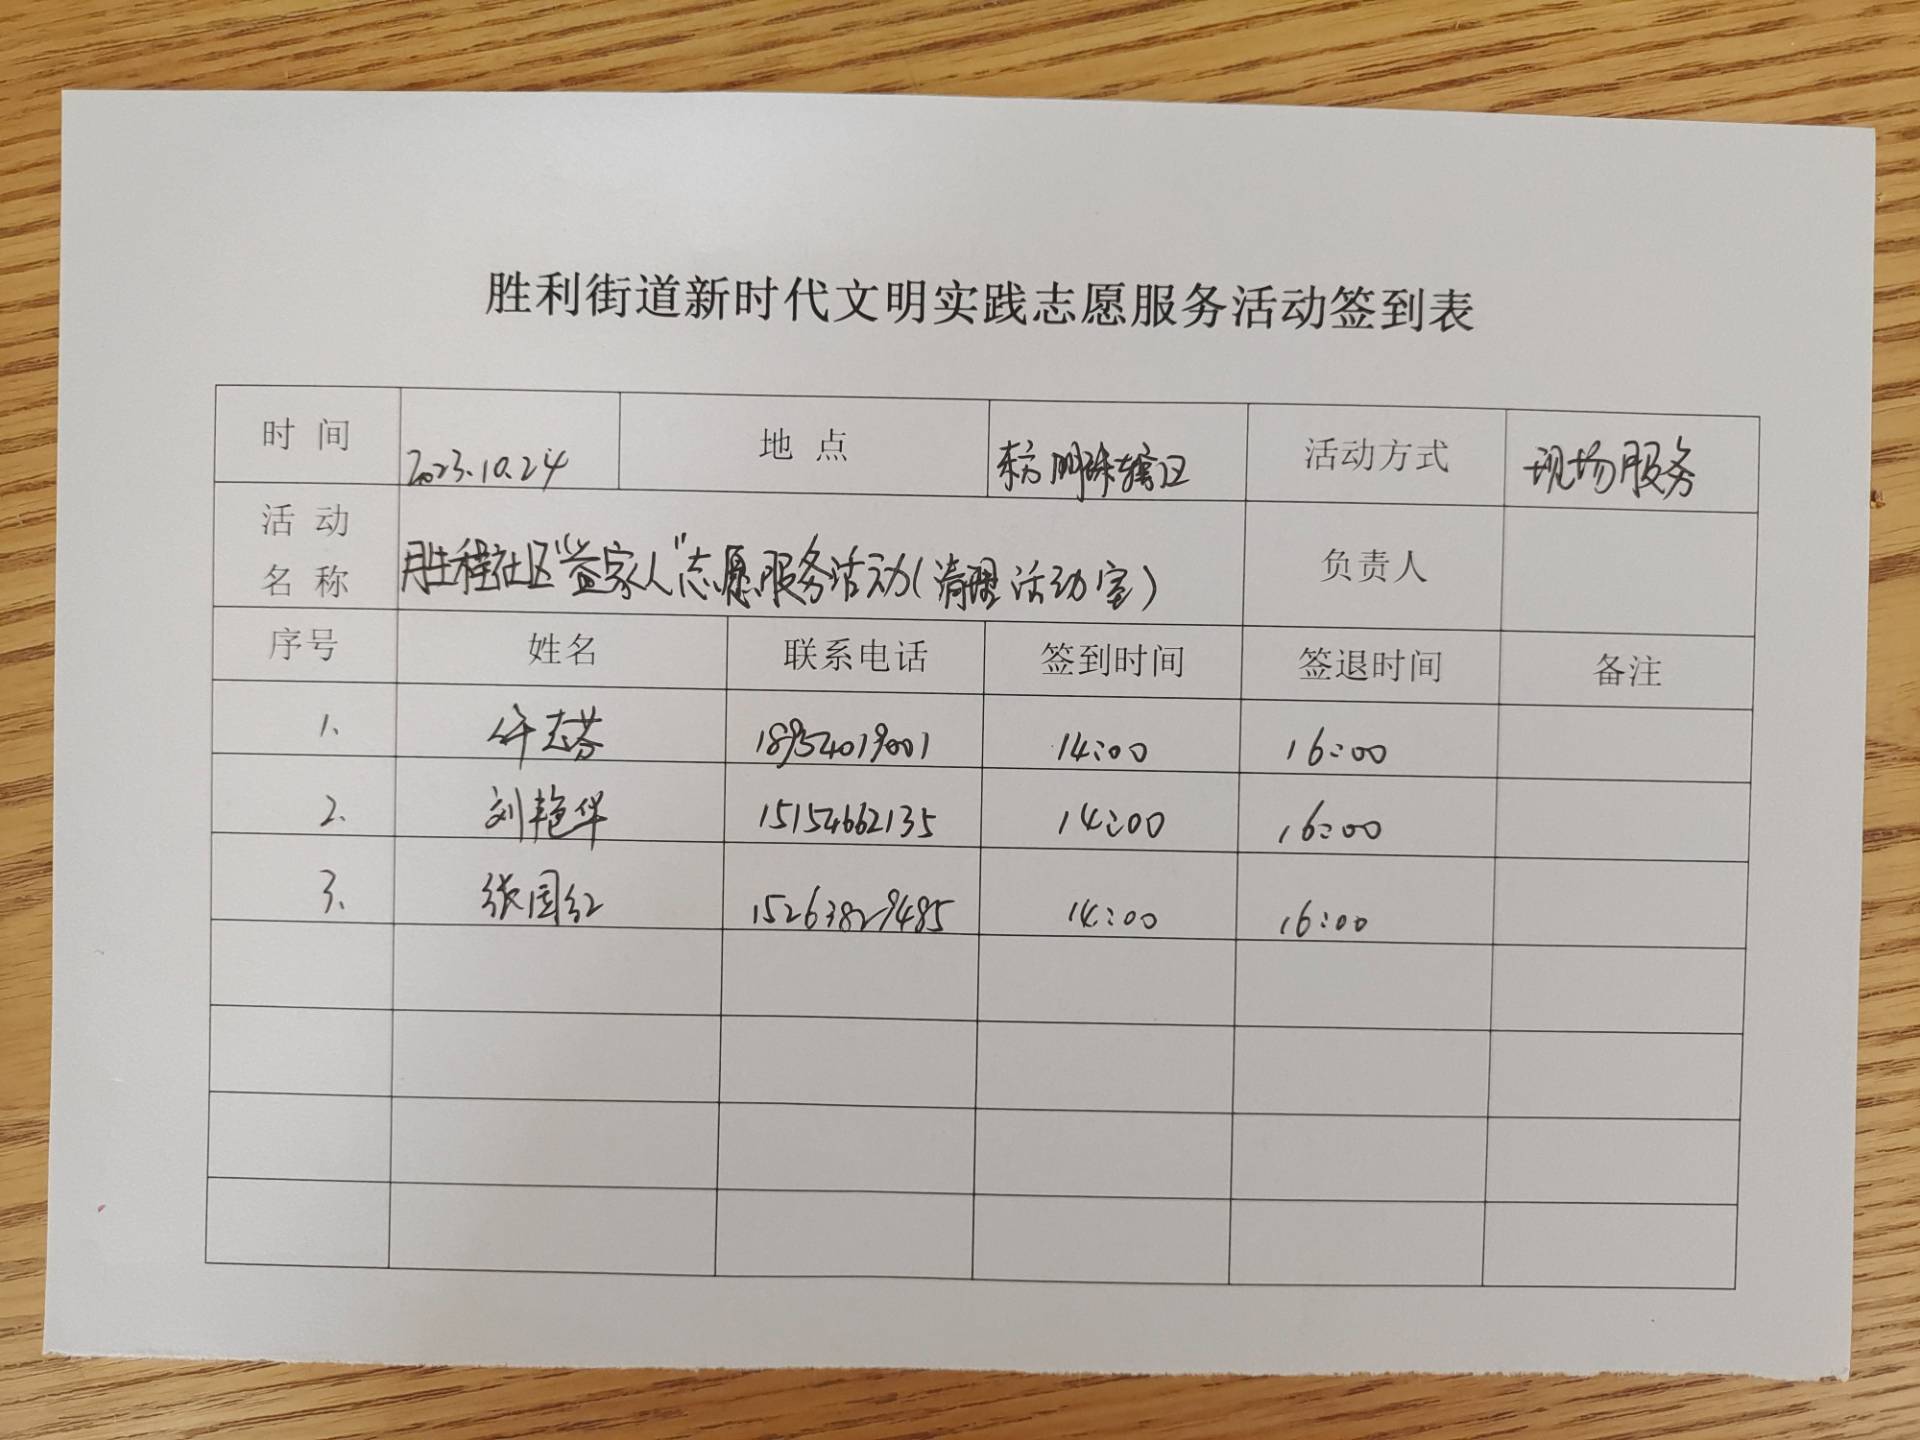 胜利街道新时代文明实践志愿服务活动签到表
时 间 2023.10.24 地 点 东方明珠辖区 活动方式 现场服务
活 动
名 称 胜程社区“益家人”志愿服务活动(清理活动室) 负责人
序号 姓名 联系电话 签到时间 签退时间 备注
1、 仵志芬 18954019001 14:00 16:00
2、 刘艳华 15154662135 14:00 16:00
3、 张国红 15263829485 14:00 16:00